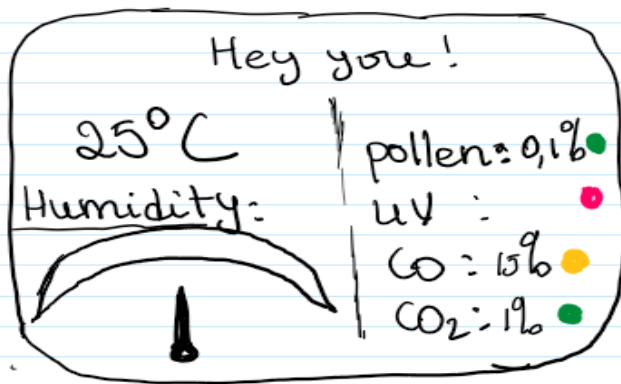 Hey you!
25°C
Humidity:
pollen: 0,1%
UV :
CO : 15%
CO2 : 1%